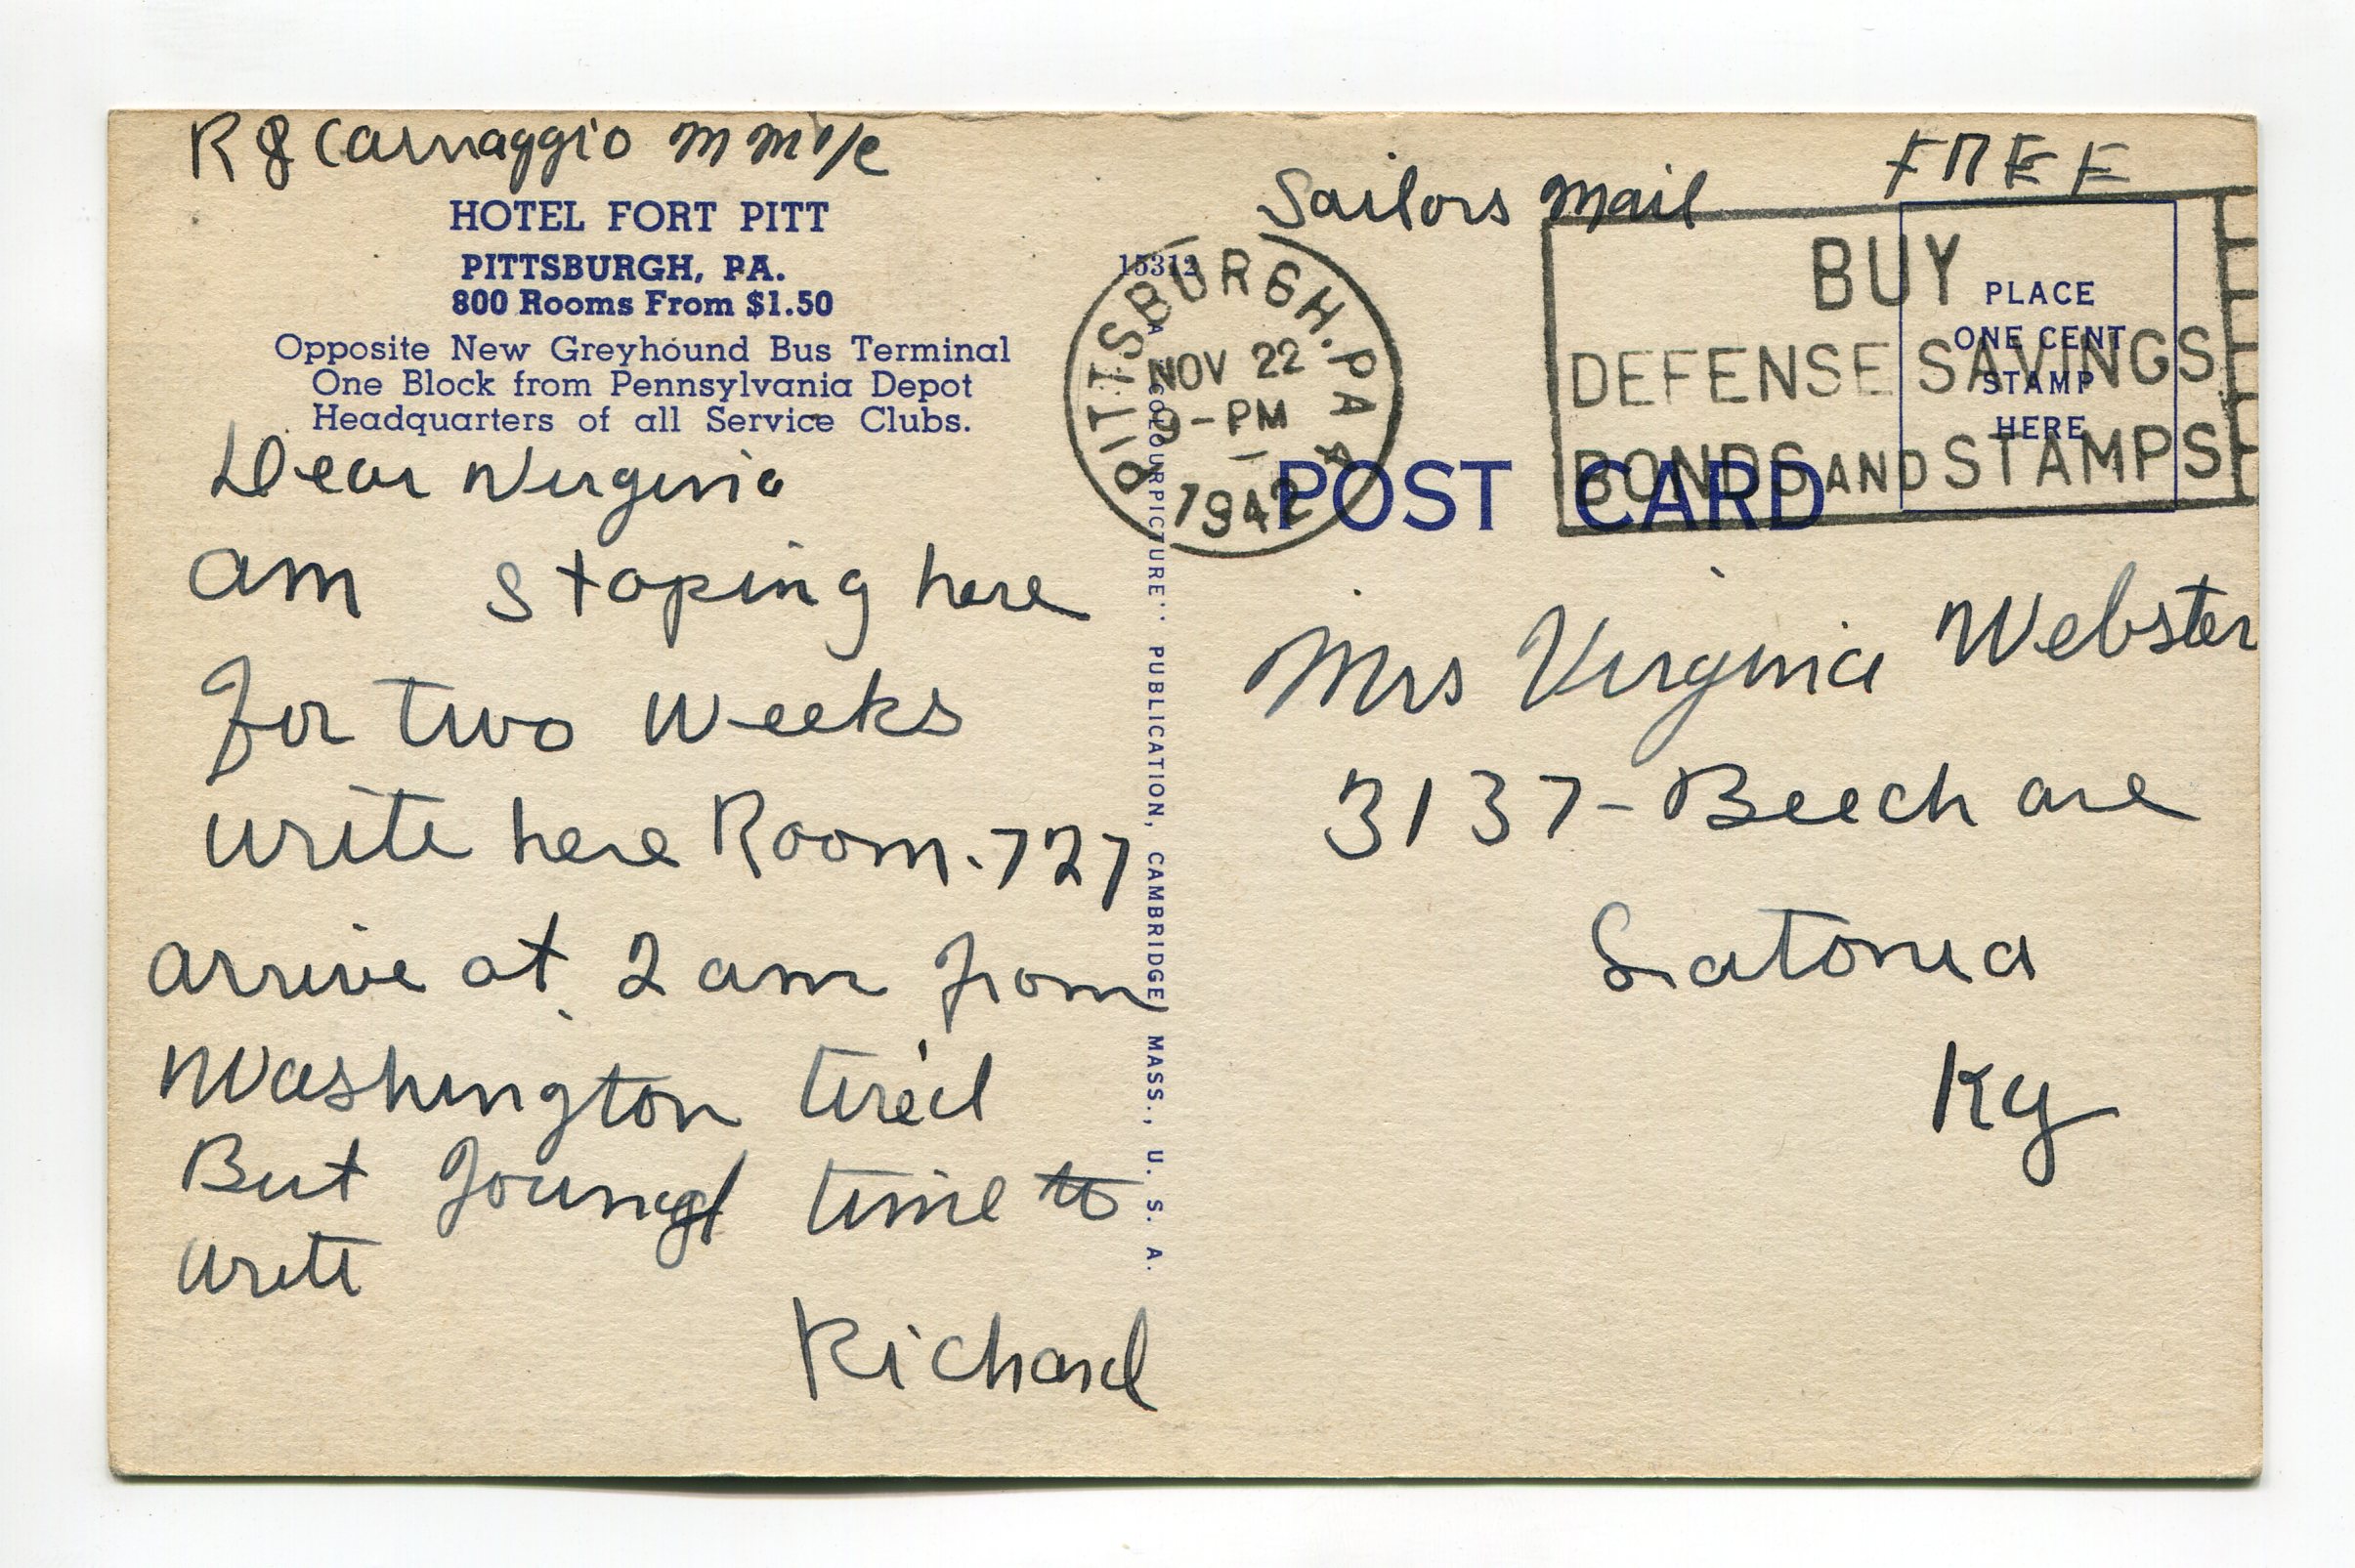 R J Carnaggio M M 1/c
HOTEL FORT PITT
PITTSBURGH, PA.
800 Rooms From $1.50
Opposite New Greyhound Bus Terminal
One Block from Pennsylvania Depot
Headquarters of all Service Clubs.
Dear Virginia
am stoping here
for two weeks
write here Room-727
arrive at 2 am from
Washington tired
But found time to
write
Richard
15312
A "COLOURPICTURE" PUBLICATION, CAMBRIDGE, MASS., U. S. A.
Sailors Mail FREE
PITTSBURGH, PA
NOV 22
9-PM
1942
BUY
DEFENSE SAVINGS
BONDS AND STAMPS
PLACE
ONE CENT
STAMP
HERE
POST CARD
Mrs Virginia Webster
3137-Beech ave
Latonia
Ky